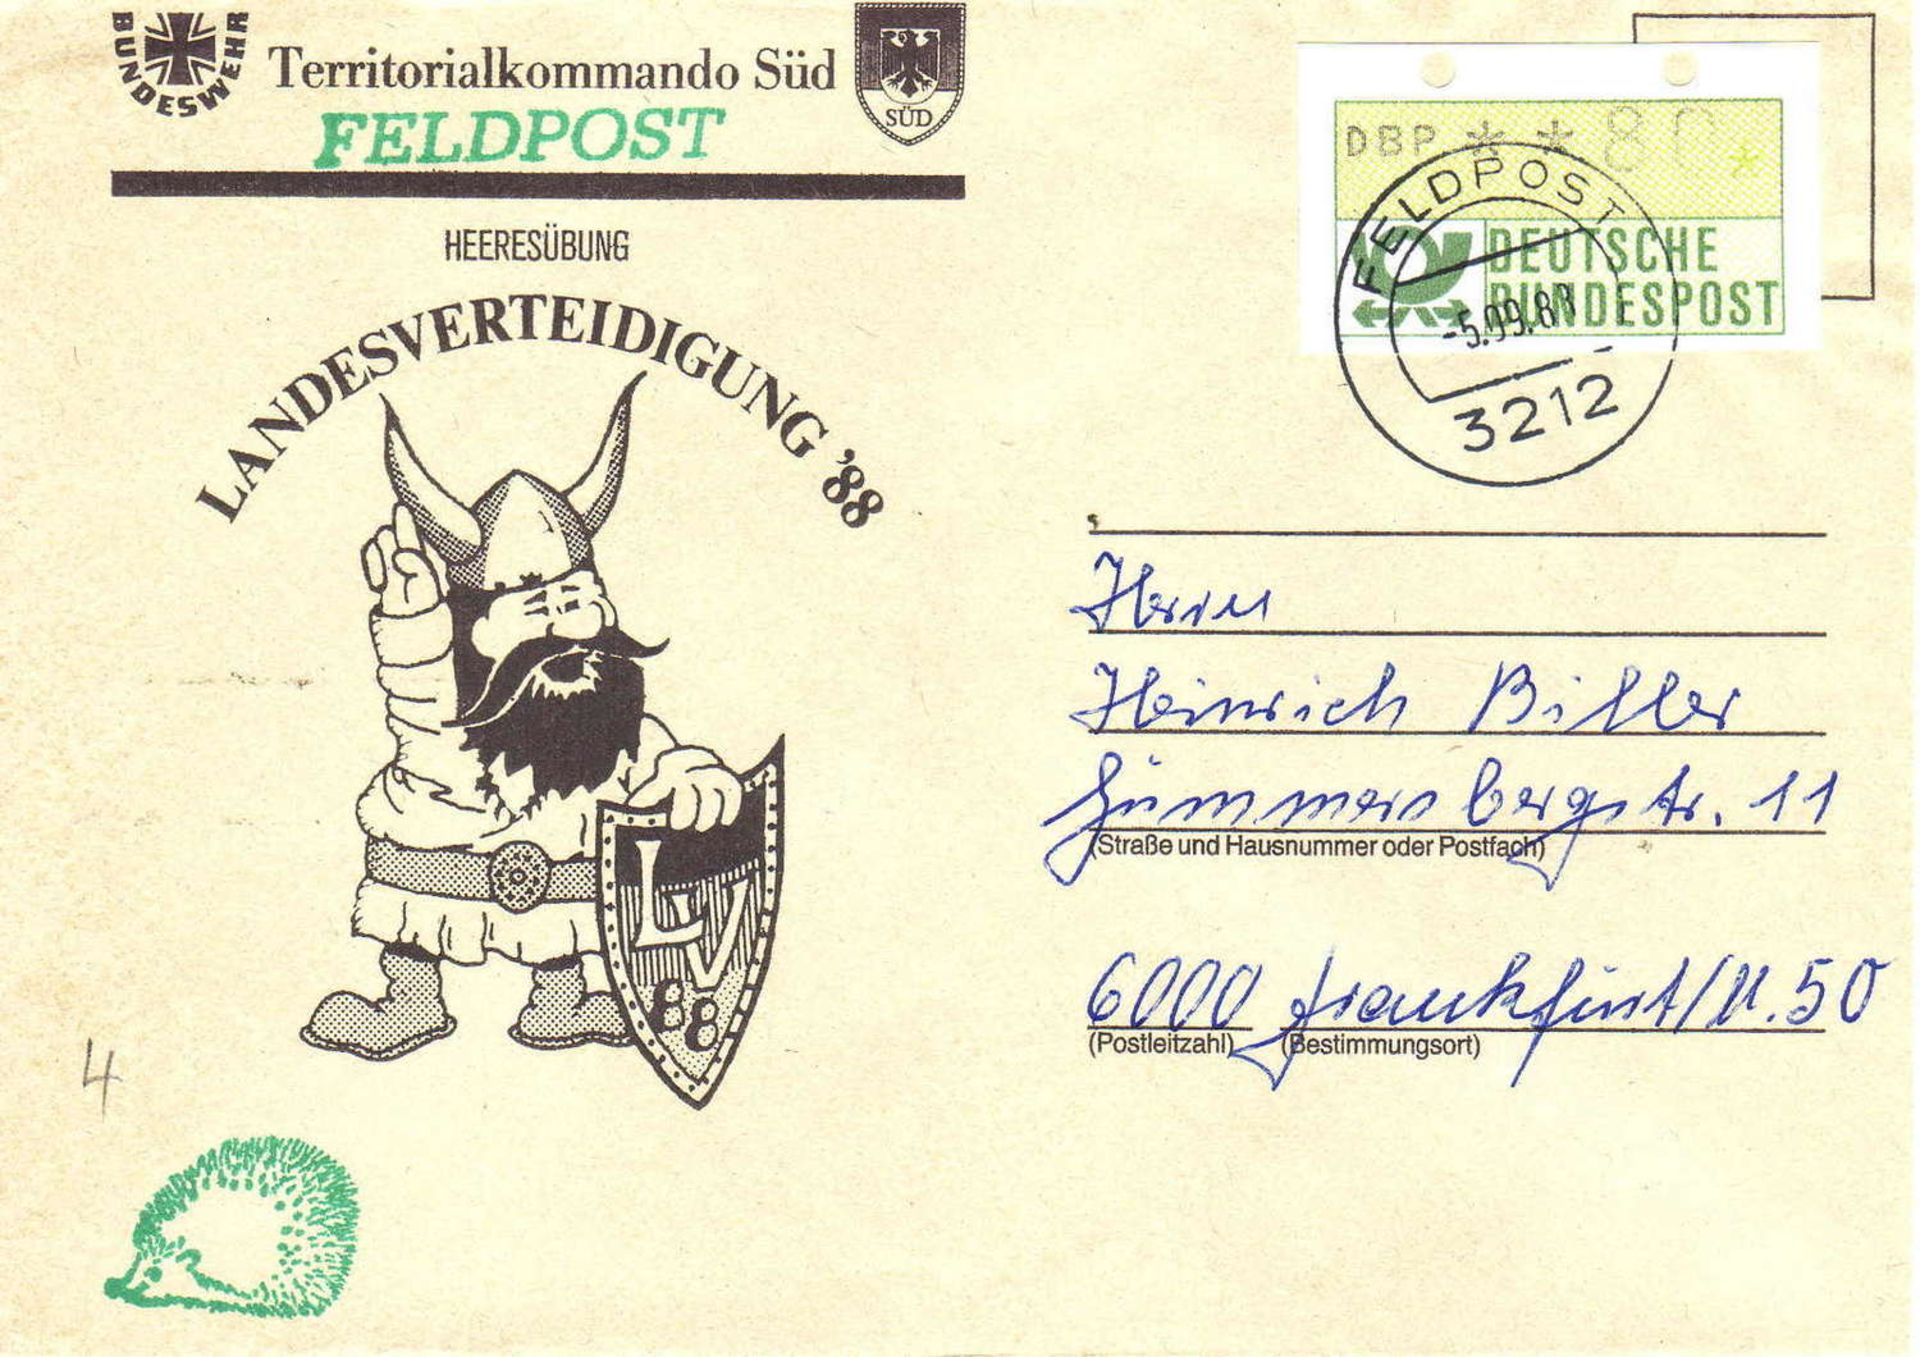 BUNDESWEHR
Territorialkommando Süd
SÜD
FELDPOST
HEERESÜBUNG
LANDESVERTEIDIGUNG '88
LV
88
4
DBP * * 80 *
DEUTSCHE
BUNDESPOST
FELDPOST
-5.09.88
3212
Herrn
Heinrich Biller
Gümmersbergstr. 11
(Straße und Hausnummer oder Postfach)
6000 Frankfurt/M. 50
(Postleitzahl) (Bestimmungsort)